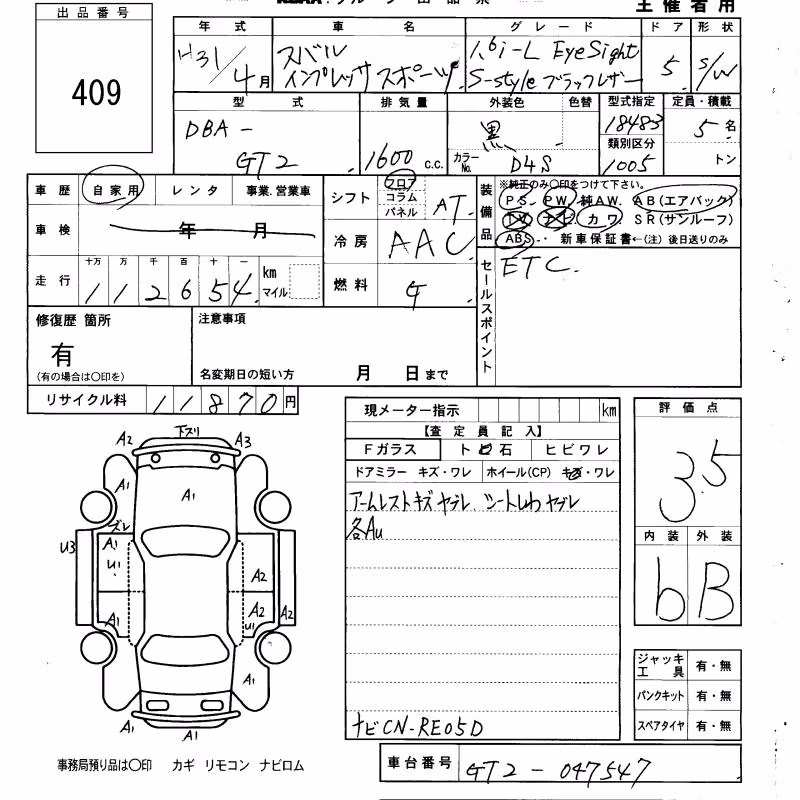 出品番号
409
主催者用
年式 車名 グレード ドア 形状
H31/4月 スバル インプレッサ スポーツ
1.6i-L EyeSight
S-style ブラックレザー 5 S/W
型式 排気量 外装色 色替 型式指定 定員・積載
DBA-GT2 1600 c.c. 黒 18483 5名
カラーNo. D4S 類別区分 1005 トン
車歴 自家用 レンタ 事業.営業車
車検 年 月
走行 十万 万 千 百 十 一
112654 km マイル
シフト フロア コラム パネル AT
冷房 AAC
燃料 G
装備品 ※純正のみ○印をつけて下さい。
PS. PW. 純AW. AB(エアバック)
TV ナビ カワ SR(サンルーフ)
ABS. 新車保証書←(注) 後日送りのみ
セールスポイント
ETC.
修復歴 箇所
有
(有の場合は○印を)
注意事項
名変期日の短い方 月 日まで
リサイクル料 11870円
現メーター指示 km
【査定員記入】
Fガラス ト 石 ヒビワレ
ドアミラー キズ・ワレ ホイール(CP) キズ・ワレ
アームレストキズヤブレ シートしわヤブレ
各Au
ナビ CN-RE05D
評価点
3.5
内装 外装
b B
ジャッキ 工具 有・無
パンクキット 有・無
スペアタイヤ 有・無
A2 下スリ A3
A1 A1
ズレ
U3 A1
U1 A2
A1 A2 A2
U1
A1
A1 A1
事務局預り品は○印 カギ リモコン ナビロム
車台番号 GT2-047547